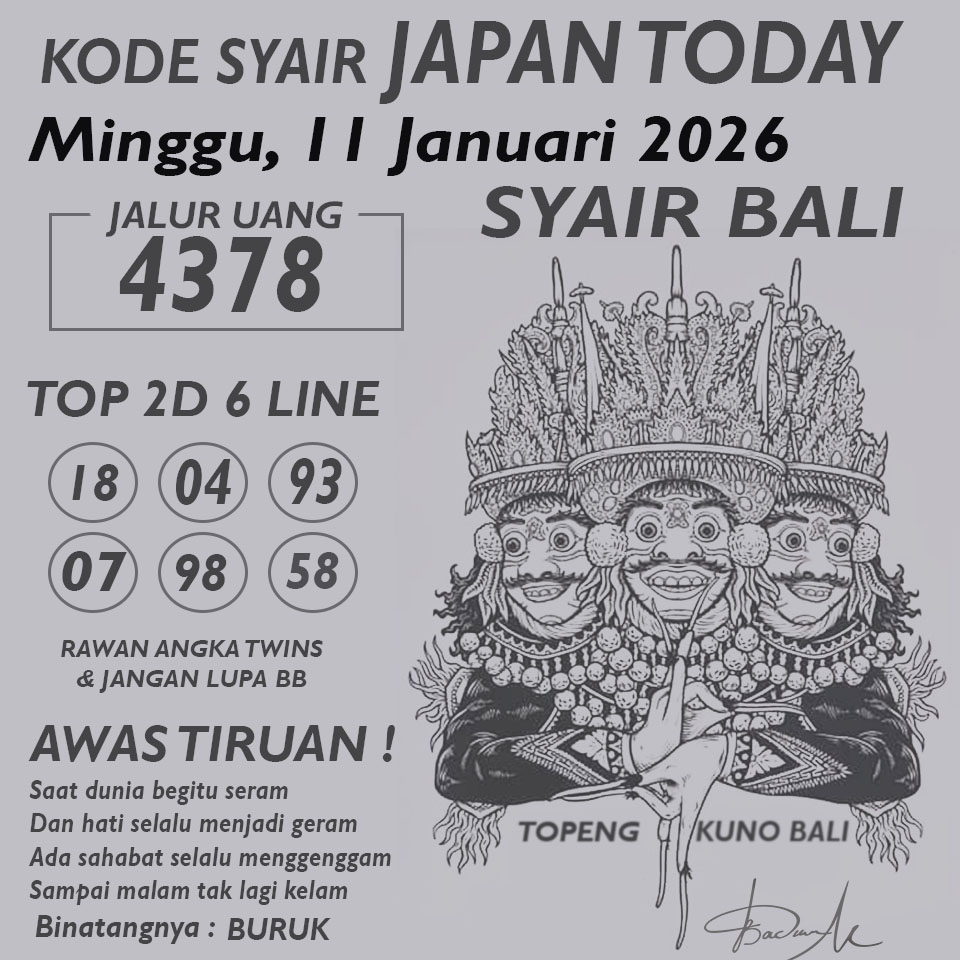 KODE SYAIR JAPAN TODAY
Minggu, 11 Januari 2026
SYAIR BALI
JALUR UANG
4378
TOP 2D 6 LINE
18 04 93
07 98 58
RAWAN ANGKA TWINS
& JANGAN LUPA BB
AWAS TIRUAN !
Saat dunia begitu seram
Dan hati selalu menjadi geram
Ada sahabat selalu menggenggam
Sampai malam tak lagi kelam
Binatangnya : BURUK
TOPENG KUNO BALI